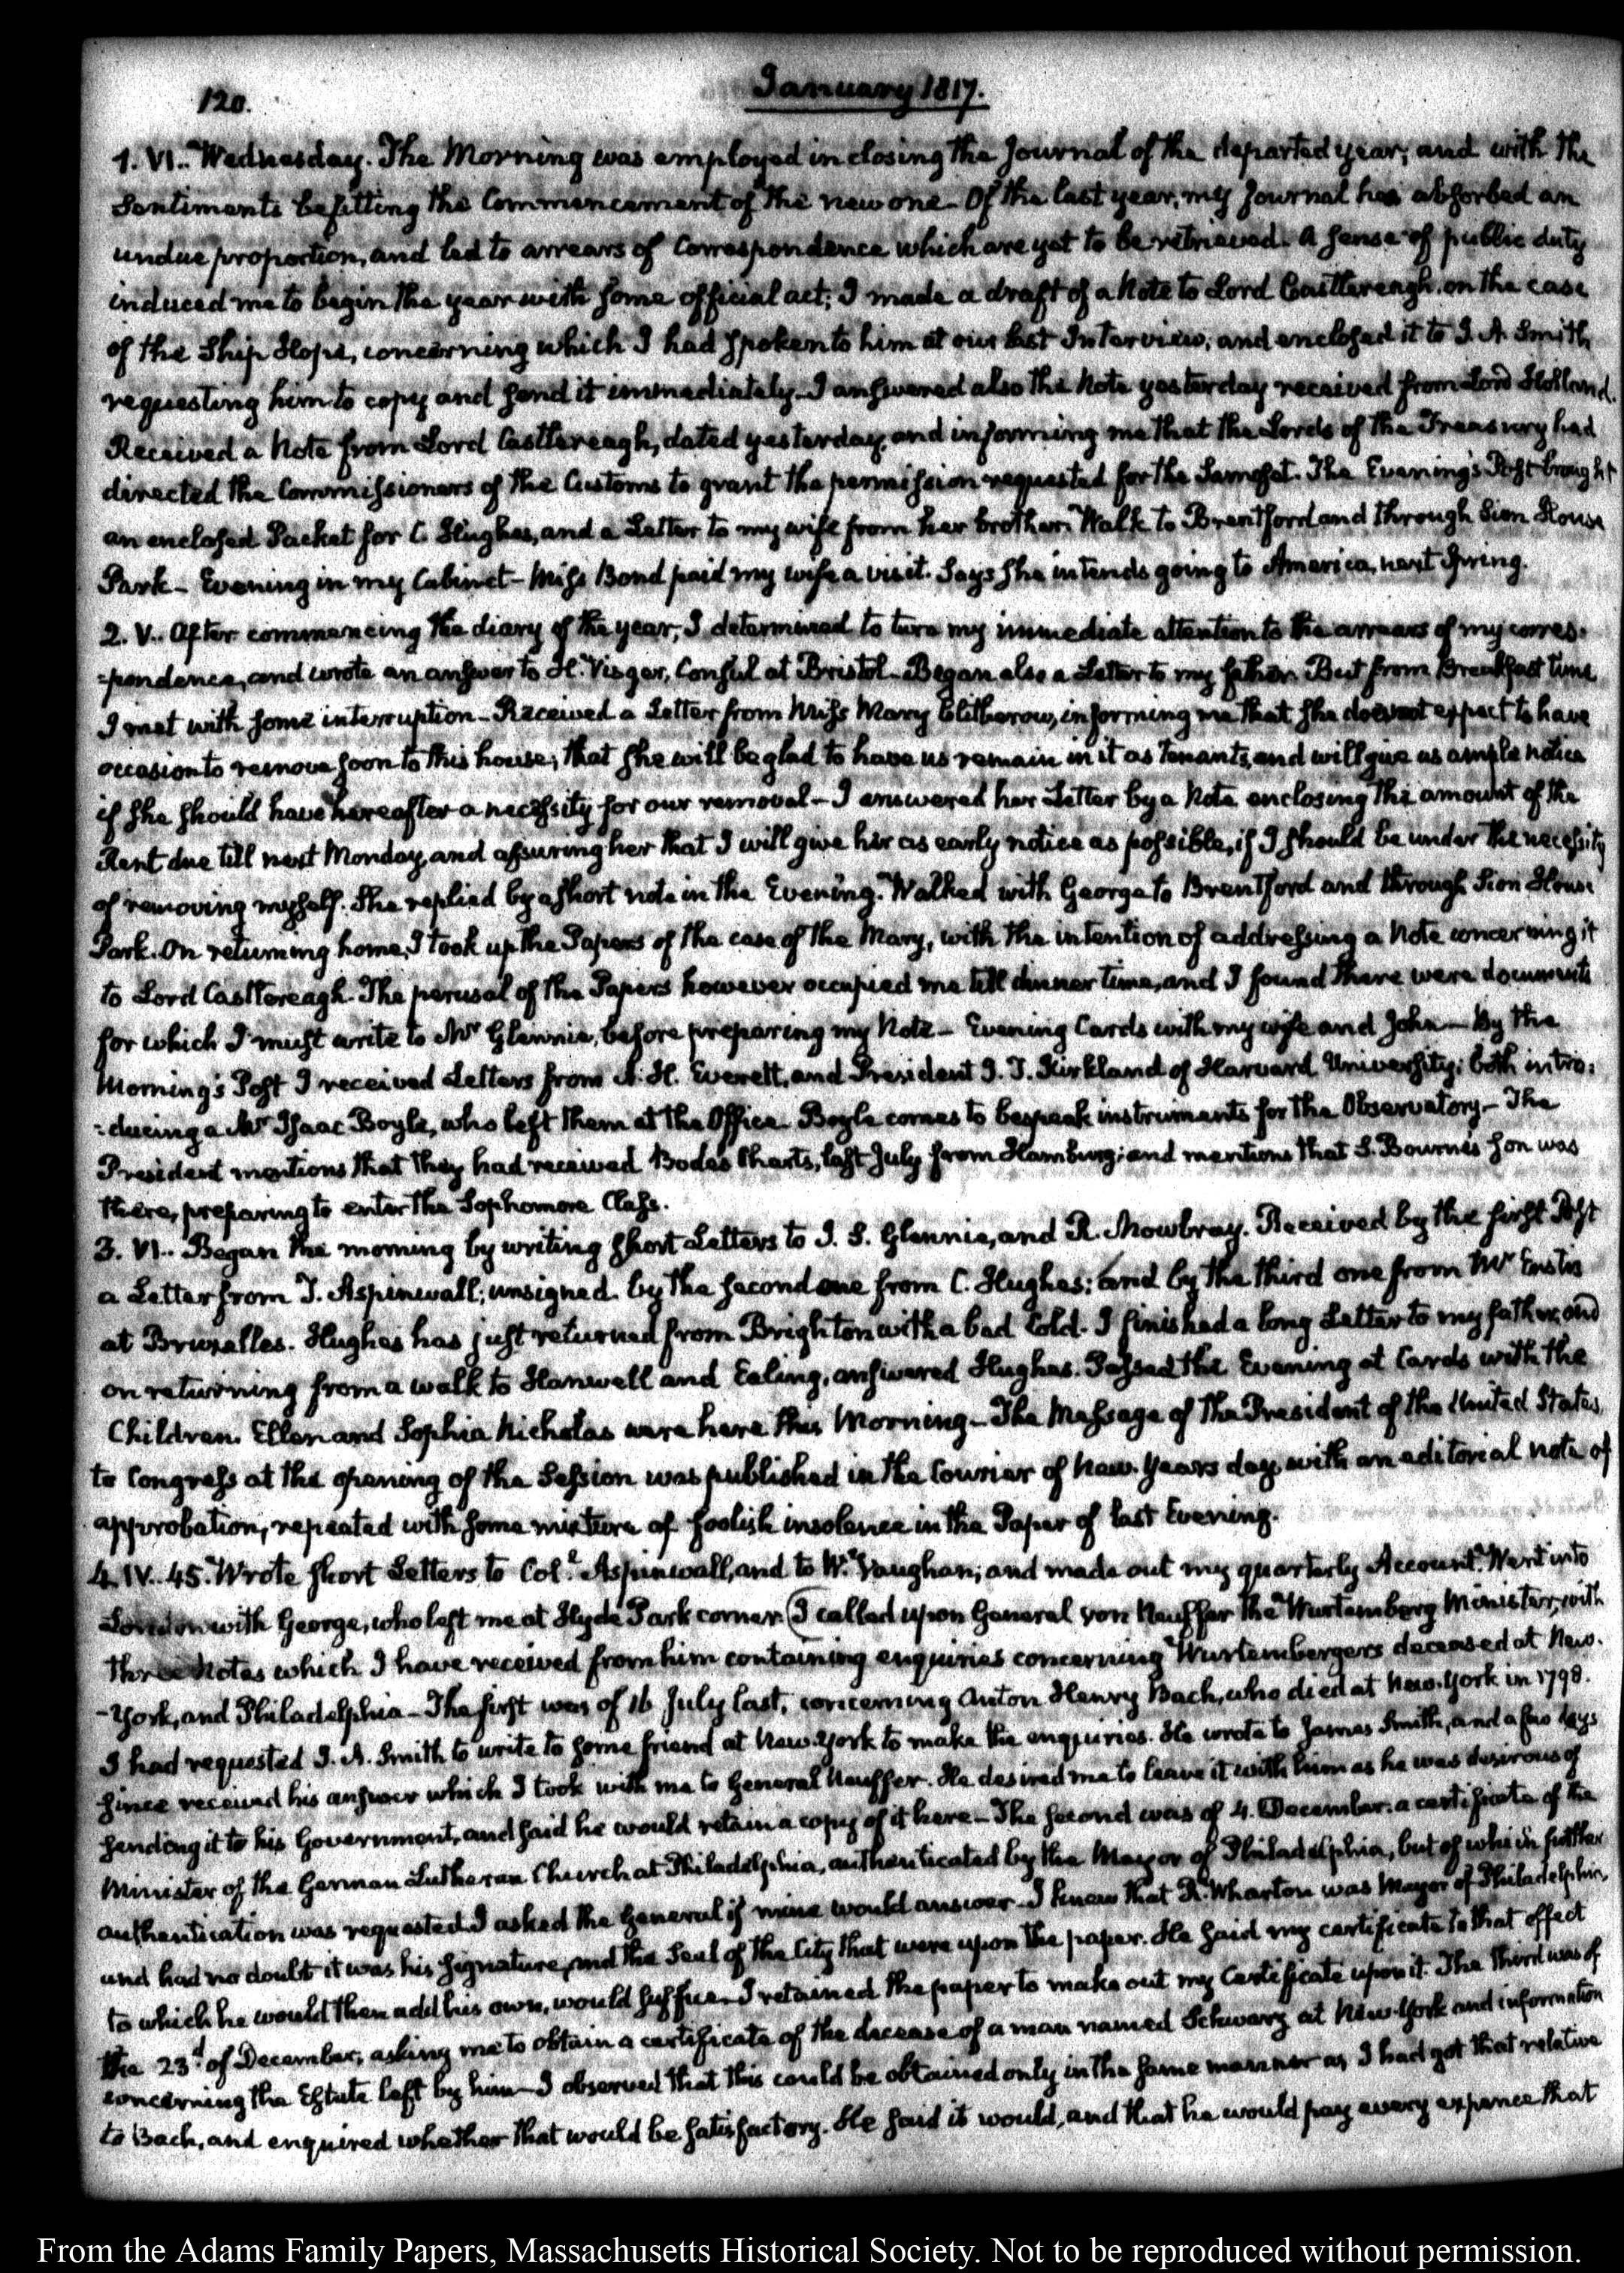 120.
January 1817.
1. VI.. Wednesday. The Morning was employed in closing the Journal of the departed year, and with the
Sentiments befitting the Commencement of the new one. Of the last year, my Journal has absorbed an
undue proportion, and led to arrears of Correspondence which are yet to be retrieved. A sense of public duty
induced me to begin the year with some official act; I made a draft of a Note to Lord Castlereagh, on the case
of the Ship Hope, concerning which I had spoken to him at our last Interview, and enclosed it to J. A. Smith
requesting him to copy and send it immediately. I answered also the Note yesterday received from Lord Holland.
Received a Note from Lord Castlereagh, dated yesterday, and informing me that the Lords of the Treasury had
directed the Commissioners of the Customs to grant the permission requested for the Samoset. The Evening's Post brought
an enclosed Packet for C. Hughes, and a Letter to my wife from her brother. Walk to Brentford and through Sion House
Park — Evening in my Cabinet — Miss Bond paid my wife a visit. Says she intends going to America, next Spring.
2. V.. After commencing the diary of the year, I determined to turn my immediate attention to the arrears of my corres-
-pondence, and wrote an answer to H. Visger, Consul at Bristol — Began also a Letter to my father. But from Breakfast time
I met with some interruption — Received a Letter from Miss Mary Clitherow, informing me that she does not expect to have
occasion to remove soon to this house; that she will be glad to have us remain in it as tenants, and will give us ample notice
if she should have hereafter a necessity for our removal — I answered her Letter by a Note enclosing the amount of the
Rent due till next Monday, and assuring her that I will give her as early notice as possible, if I should be under the necessity
of removing myself. She replied by a short note in the Evening. Walked with George to Brentford and through Sion House
Park. On returning home, I took up the Papers of the case of the Mary, with the intention of addressing a Note concerning it
to Lord Castlereagh. The perusal of the Papers however occupied me till dinner time, and I found there were documents
for which I must write to Mr Glennie, before preparing my Note — Evening Cards with my wife and John — By the
Morning's Post I received Letters from A. H. Everett, and President J. T. Kirkland of Harvard University; both intro-
-ducing a Mr Isaac Boyle, who left them at the Office. Boyle comes to bespeak instruments for the Observatory — The
President mentions that they had received Bode's Charts, last July from Hamburg; and mentions that S. Bourne's son was
there, preparing to enter the Sophomore Class.
3. VI.. Began the morning by writing short Letters to J. S. Glennie, and R. Mowbray. Received by the first Post
a Letter from T. Aspinwall; unsigned. by the second one from C. Hughes; and by the third one from Mr Eustis
at Bruxelles. Hughes has just returned from Brighton with a bad Cold. I finished a long Letter to my father, and
on returning from a walk to Hanwell and Ealing, answered Hughes. Passed the Evening at Cards with the
Children. Ellen and Sophia Nicholas were here this Morning — The Message of the President of the United States,
to Congress at the opening of the Session was published in the Courier of New-Years day with an editorial note of
approbation, repeated with some mixture of foolish insolence in the Paper of last Evening.
4. IV.. 45. Wrote short Letters to Coll. Aspinwall, and to W. Vaughan; and made out my quarterly Account. Went into
London with George, who left me at Hyde Park corner. (I called upon General von Neuffer the Wurtemberg Minister, with
three Notes which I have received from him containing enquiries concerning Wurtembergers deceased at New-
-York, and Philadelphia — The first was of 16 July last, concerning Anton Henry Bach, who died at New-York in 1798.
I had requested J. A. Smith to write to some friend at New-York to make the enquiries. He wrote to James Smith, and a few days
since received his answer which I took with me to General Neuffer. He desired me to leave it with him as he was desirous of
sending it to his Government, and said he would retain a copy of it here — The second was of 4. December: a certificate of the
Minister of the German Lutheran Church at Philadelphia, authenticated by the Mayor of Philadelphia, but of which further
authentication was requested. I asked the General if mine would answer. I knew that R. Wharton was Mayor of Philadelphia,
and had no doubt it was his signature, and the Seal of the City that were upon the paper. He said my certificate to that effect
to which he would then add his own, would suffice — I retained the paper to make out my Certificate upon it. The third was of
the 23d of December, asking me to obtain a certificate of the decease of a man named Schwarz at New-York and information
concerning the Estate left by him — I observed that this could be obtained only in the same manner as I had got that relative
to Bach, and enquired whether that would be satisfactory. He said it would, and that he would pay every expence that
From the Adams Family Papers, Massachusetts Historical Society. Not to be reproduced without permission.